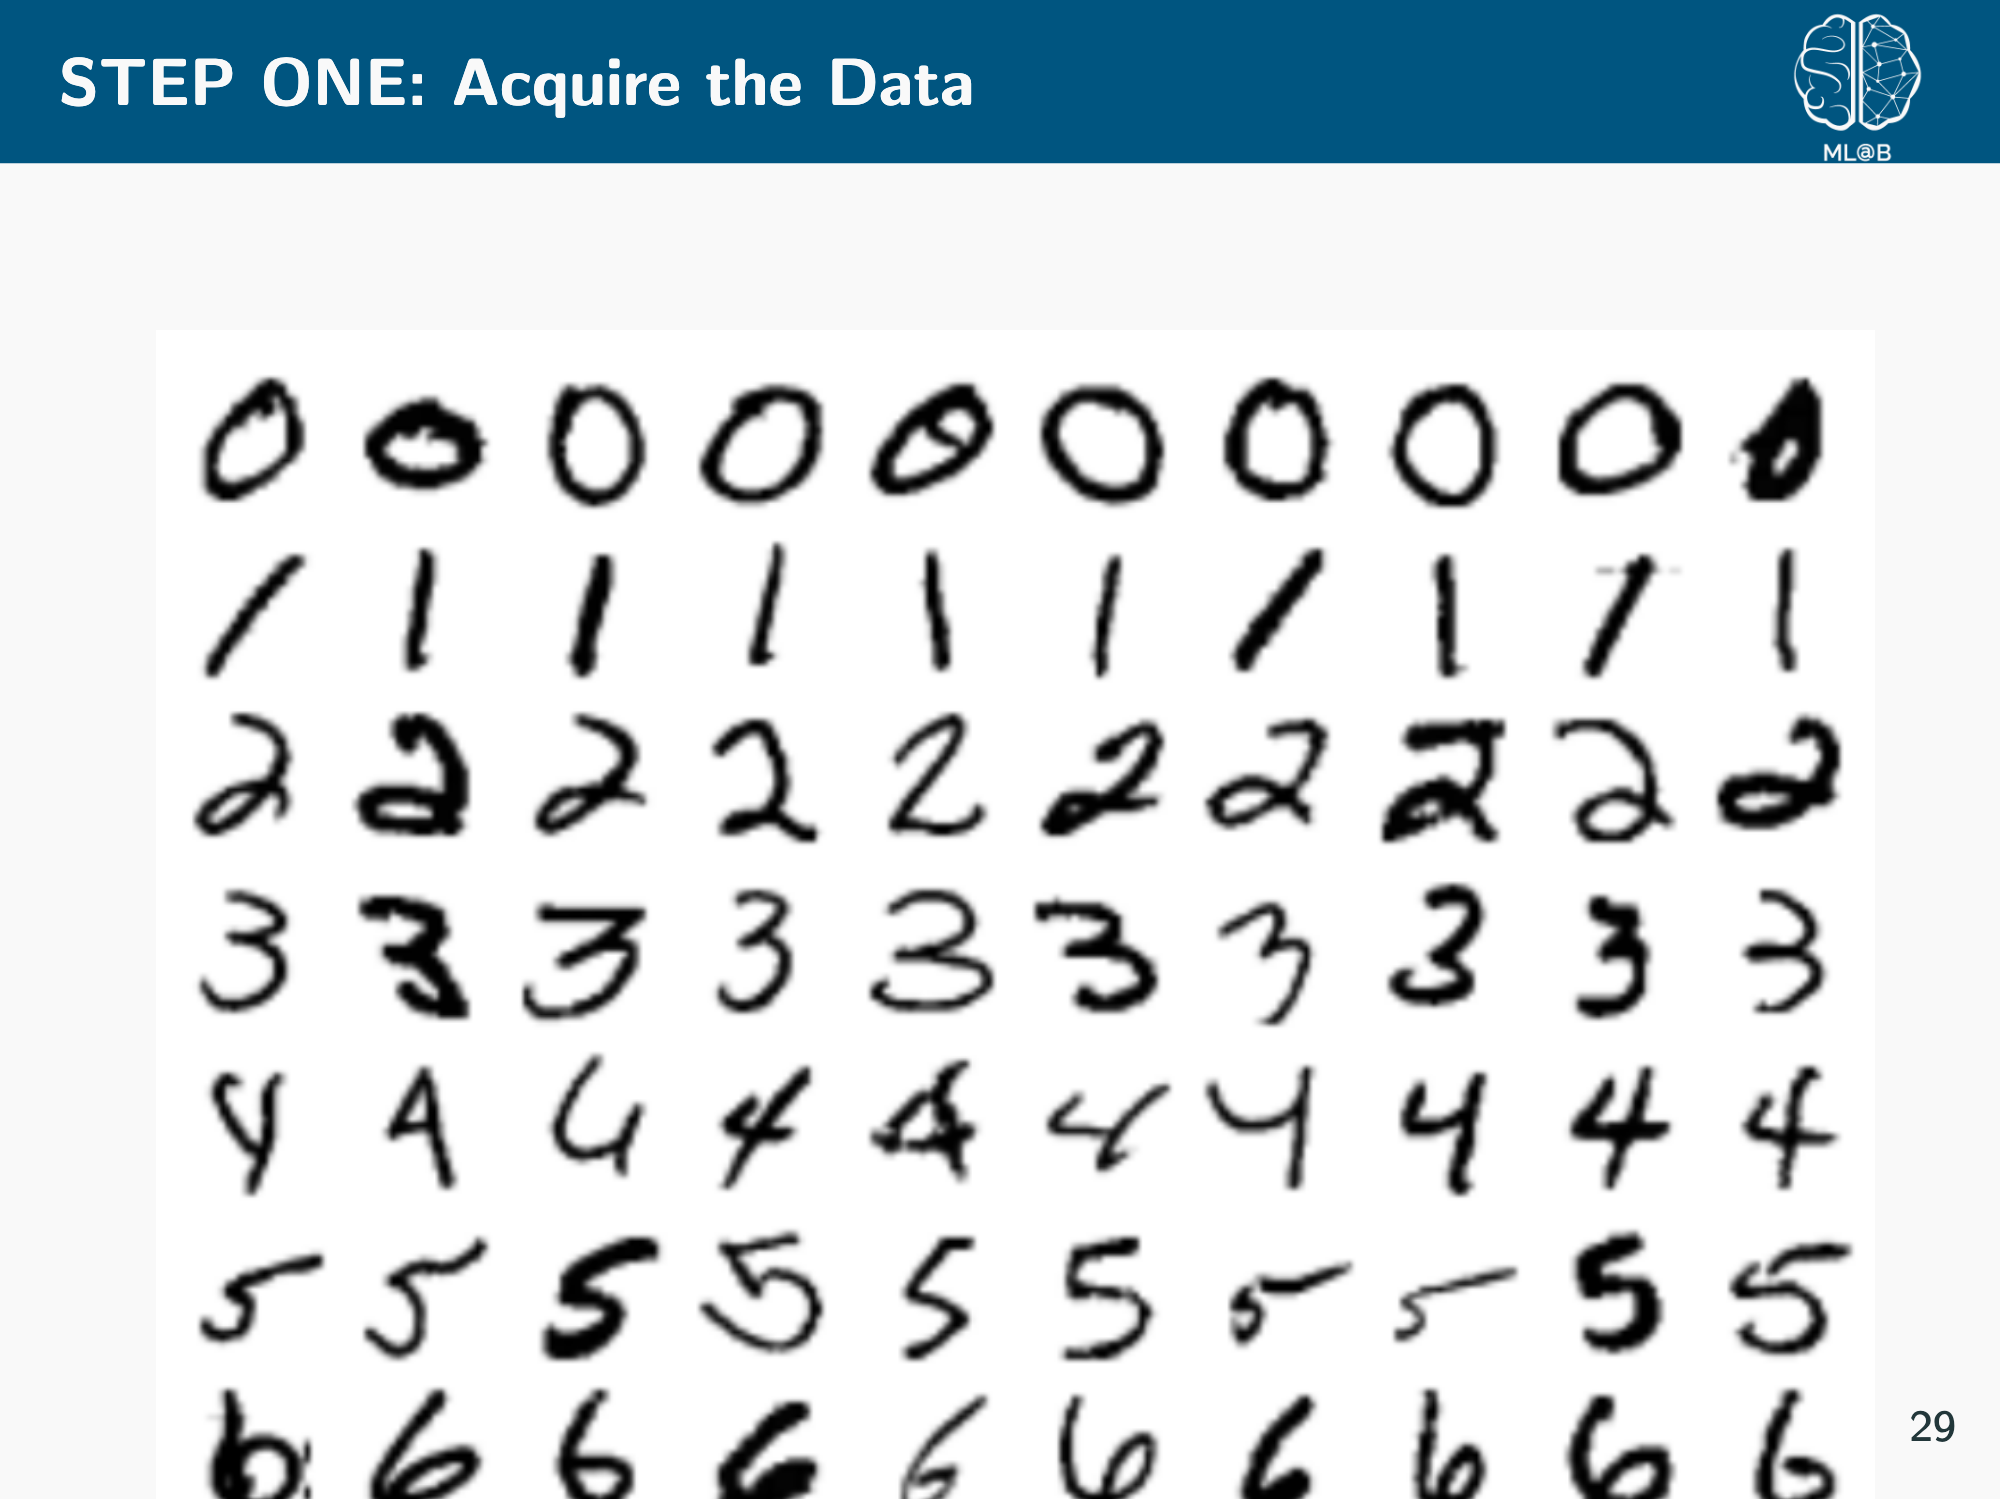 STEP ONE: Acquire the Data
ML@B
0 0 0 0 0 0 0 0 0 0
1 1 1 1 1 1 1 1 1 1
2 2 2 2 2 2 2 2 2 2
3 3 3 3 3 3 3 3 3 3
4 4 4 4 4 4 4 4 4 4
5 5 5 5 5 5 5 5 5 5
6 6 6 6 6 6 6 6 6 6
29